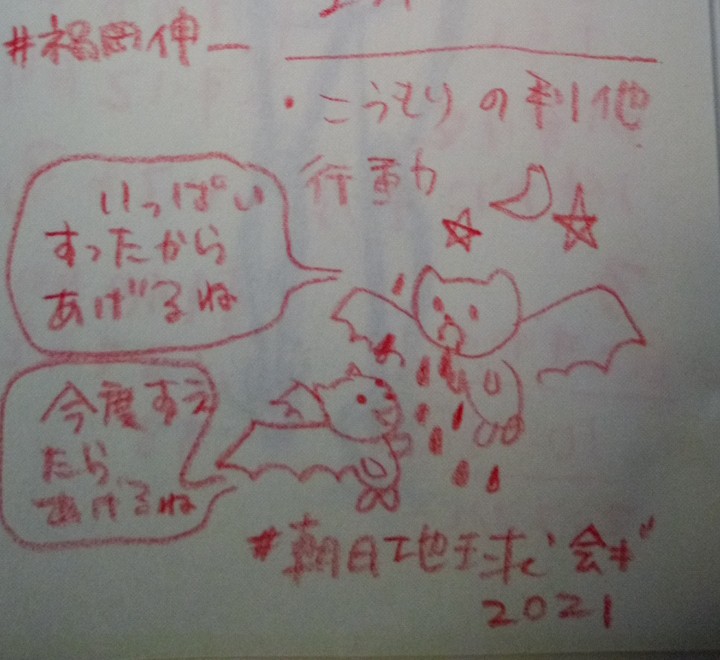 #福岡伸一
・こうもりの利他
行動
いっぱい
すったから
あげるね
今度すえ
たら
あげるね
#朝日地球会ギ
2021